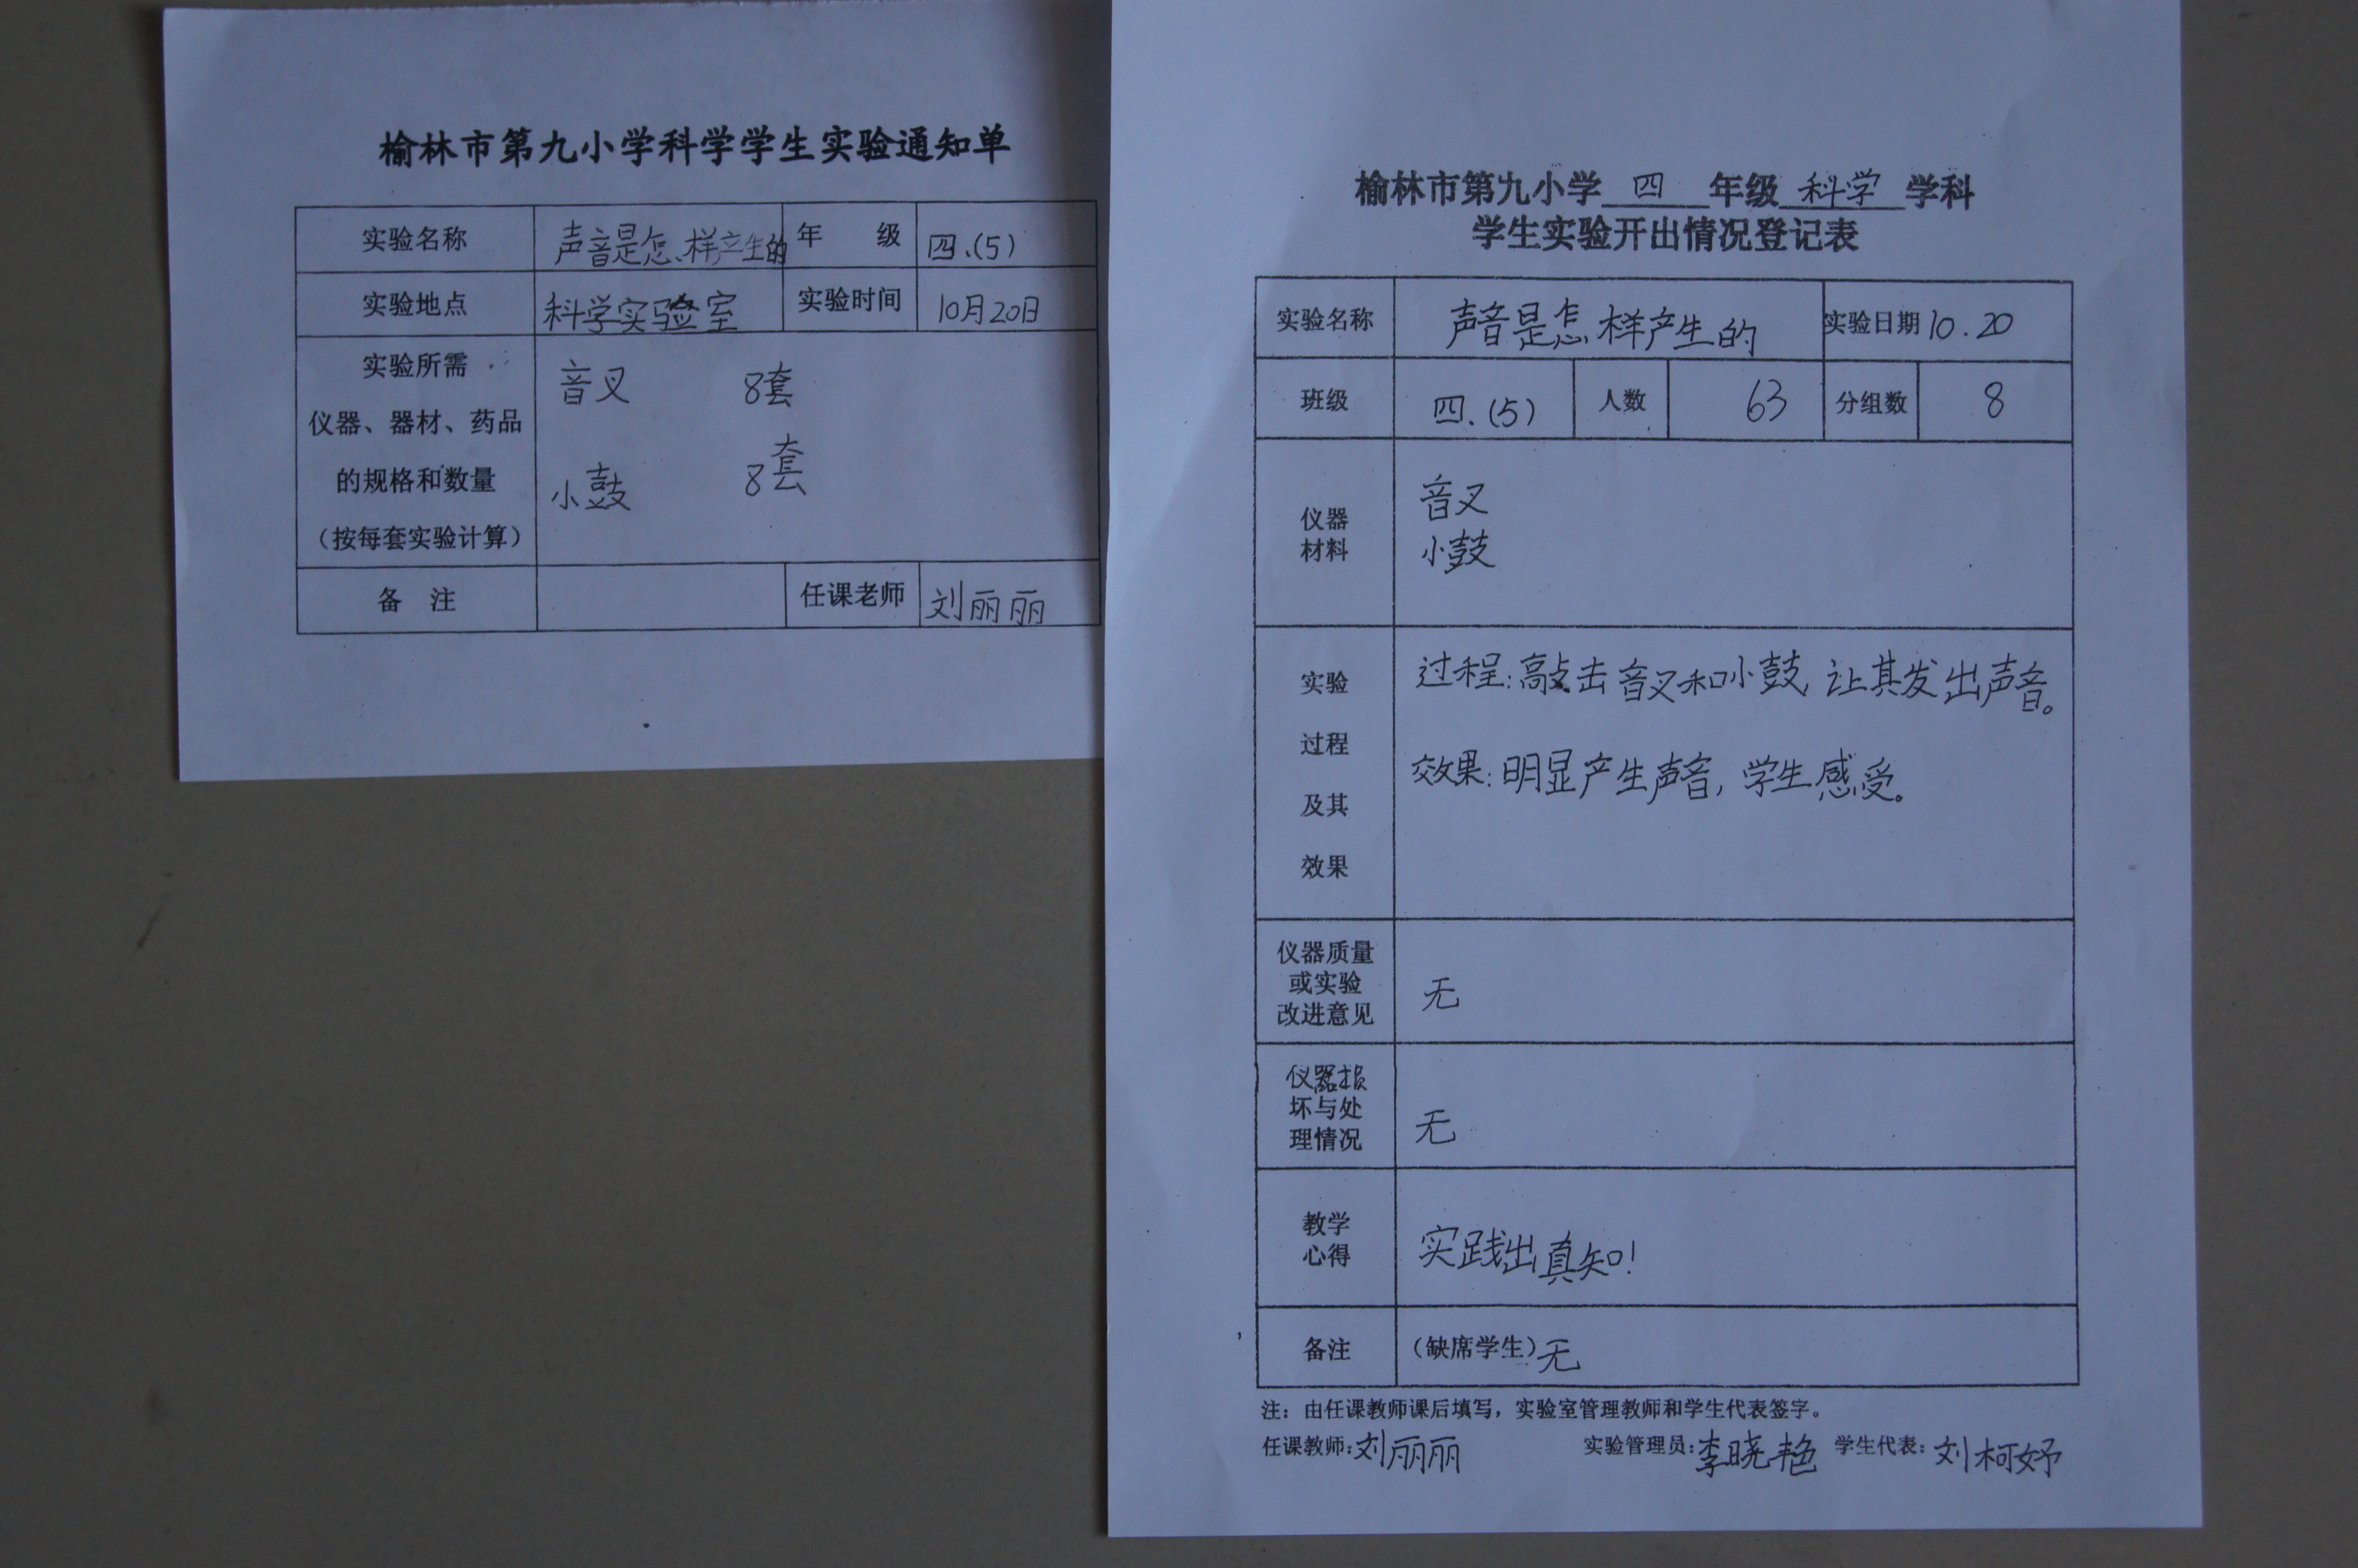 榆林市第九小学科学学生实验通知单
实验名称 声音是怎样产生的 年 级 四.(5)
实验地点 科学实验室 实验时间 10月20日
实验所需
仪器、器材、药品
的规格和数量
（按每套实验计算）
音叉 8套
小鼓 8套
备 注 任课老师 刘丽丽
榆林市第九小学 四 年级 科学 学科
学生实验开出情况登记表
实验名称 声音是怎样产生的 实验日期 10.20
班级 四.(5) 人数 63 分组数 8
仪器
材料
音叉
小鼓
实验
过程
及其
效果
过程:敲击音叉和小鼓,让其发出声音。
效果:明显产生声音,学生感受。
仪器质量
或实验
改进意见
无
仪器损
坏与处
理情况
无
教学
心得
实践出真知!
备注 （缺席学生）无
注：由任课教师课后填写，实验室管理教师和学生代表签字。
任课教师:刘丽丽 实验管理员:李晓艳 学生代表:刘柯妤